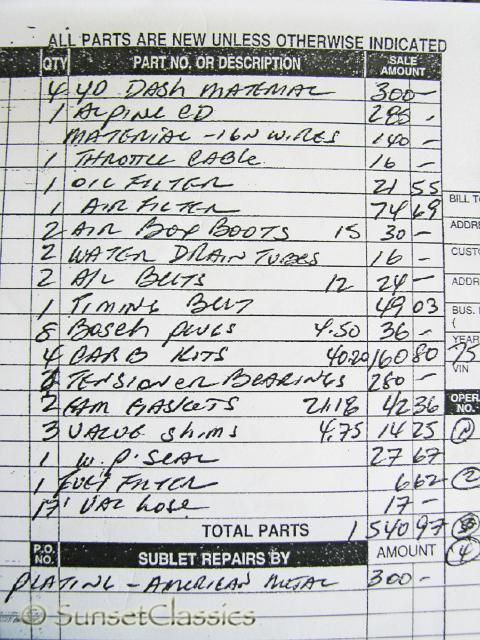 ALL PARTS ARE NEW UNLESS OTHERWISE INDICATED
QTY PART NO. OR DESCRIPTION SALE AMOUNT
4 YD DASH MATERIAL 300 -
1 ALPINE CD 285 -
MATERIAL - IGN WIRES 140 -
1 THROTTLE CABLE 16 -
1 OIL FILTER 21 55
1 AIR FILTER 74 69
2 AIR BOX BOOTS 15 30 -
2 WATER DRAIN TUBES 16 -
2 A/C BELTS 12 24 -
1 TIMING BELT 49 03
8 Bosch plugs 4.50 36 -
4 CARB KITS 40.20 160 80
TENSIONER BEARINGS 280 -
2 CAM GASKETS 21.18 42 36
3 VALVE Shims 4.75 14 25
1 W.P. SEAL 27 67
1 FUEL FILTER 6 62
17' VAC hose 17 -
TOTAL PARTS 1 540 97
P.O. NO. SUBLET REPAIRS BY AMOUNT
PLATING - AMERICAN METAL 300 -
BILL TO
ADDRE
CUSTO
ADDR
BUS.
(
YEAR
75
VIN
OPER. NO.
2
3
4
© SunsetClassics